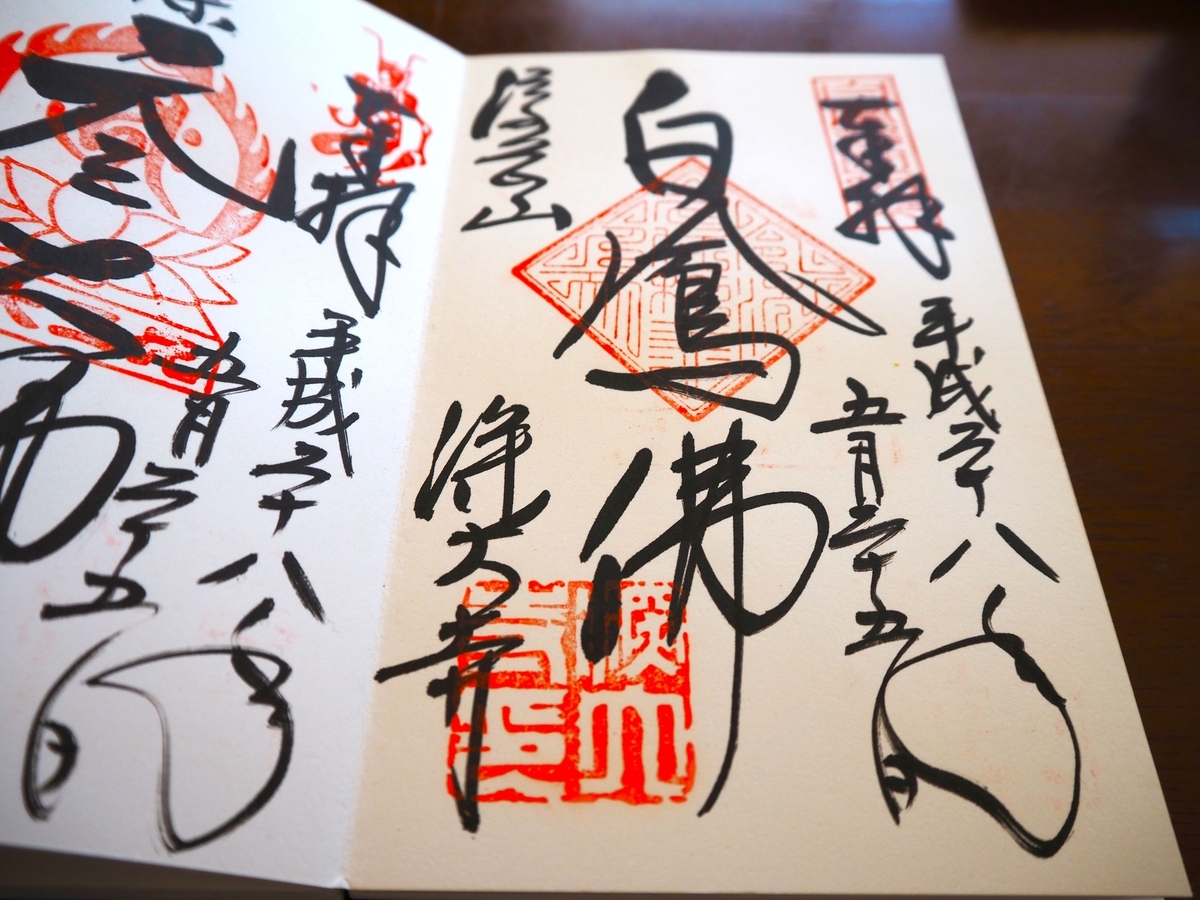 奉拝
平成二十八年
五月二十五日
白鳳佛
浮岳山
深大寺
奉拝
平成二十八年
五月二十五日
元三大師